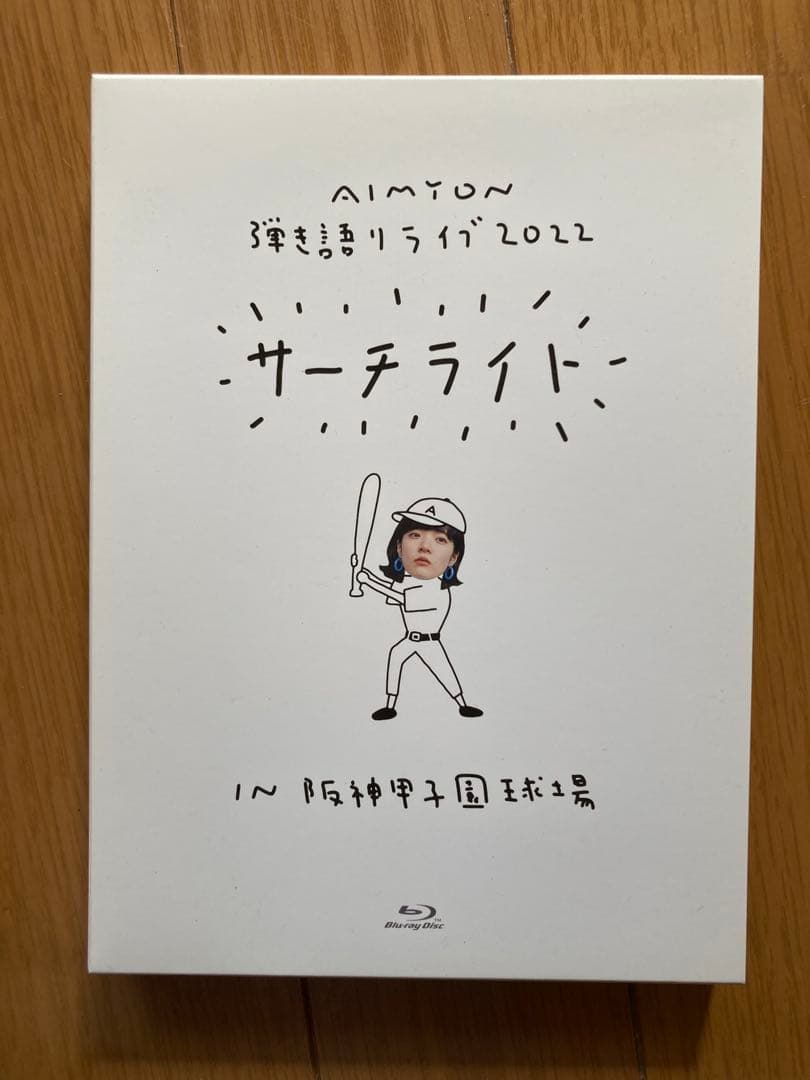 AIMYON
弾き語りライブ2022
サーチライト
A
IN 阪神甲子園球場
Blu-ray Disc™